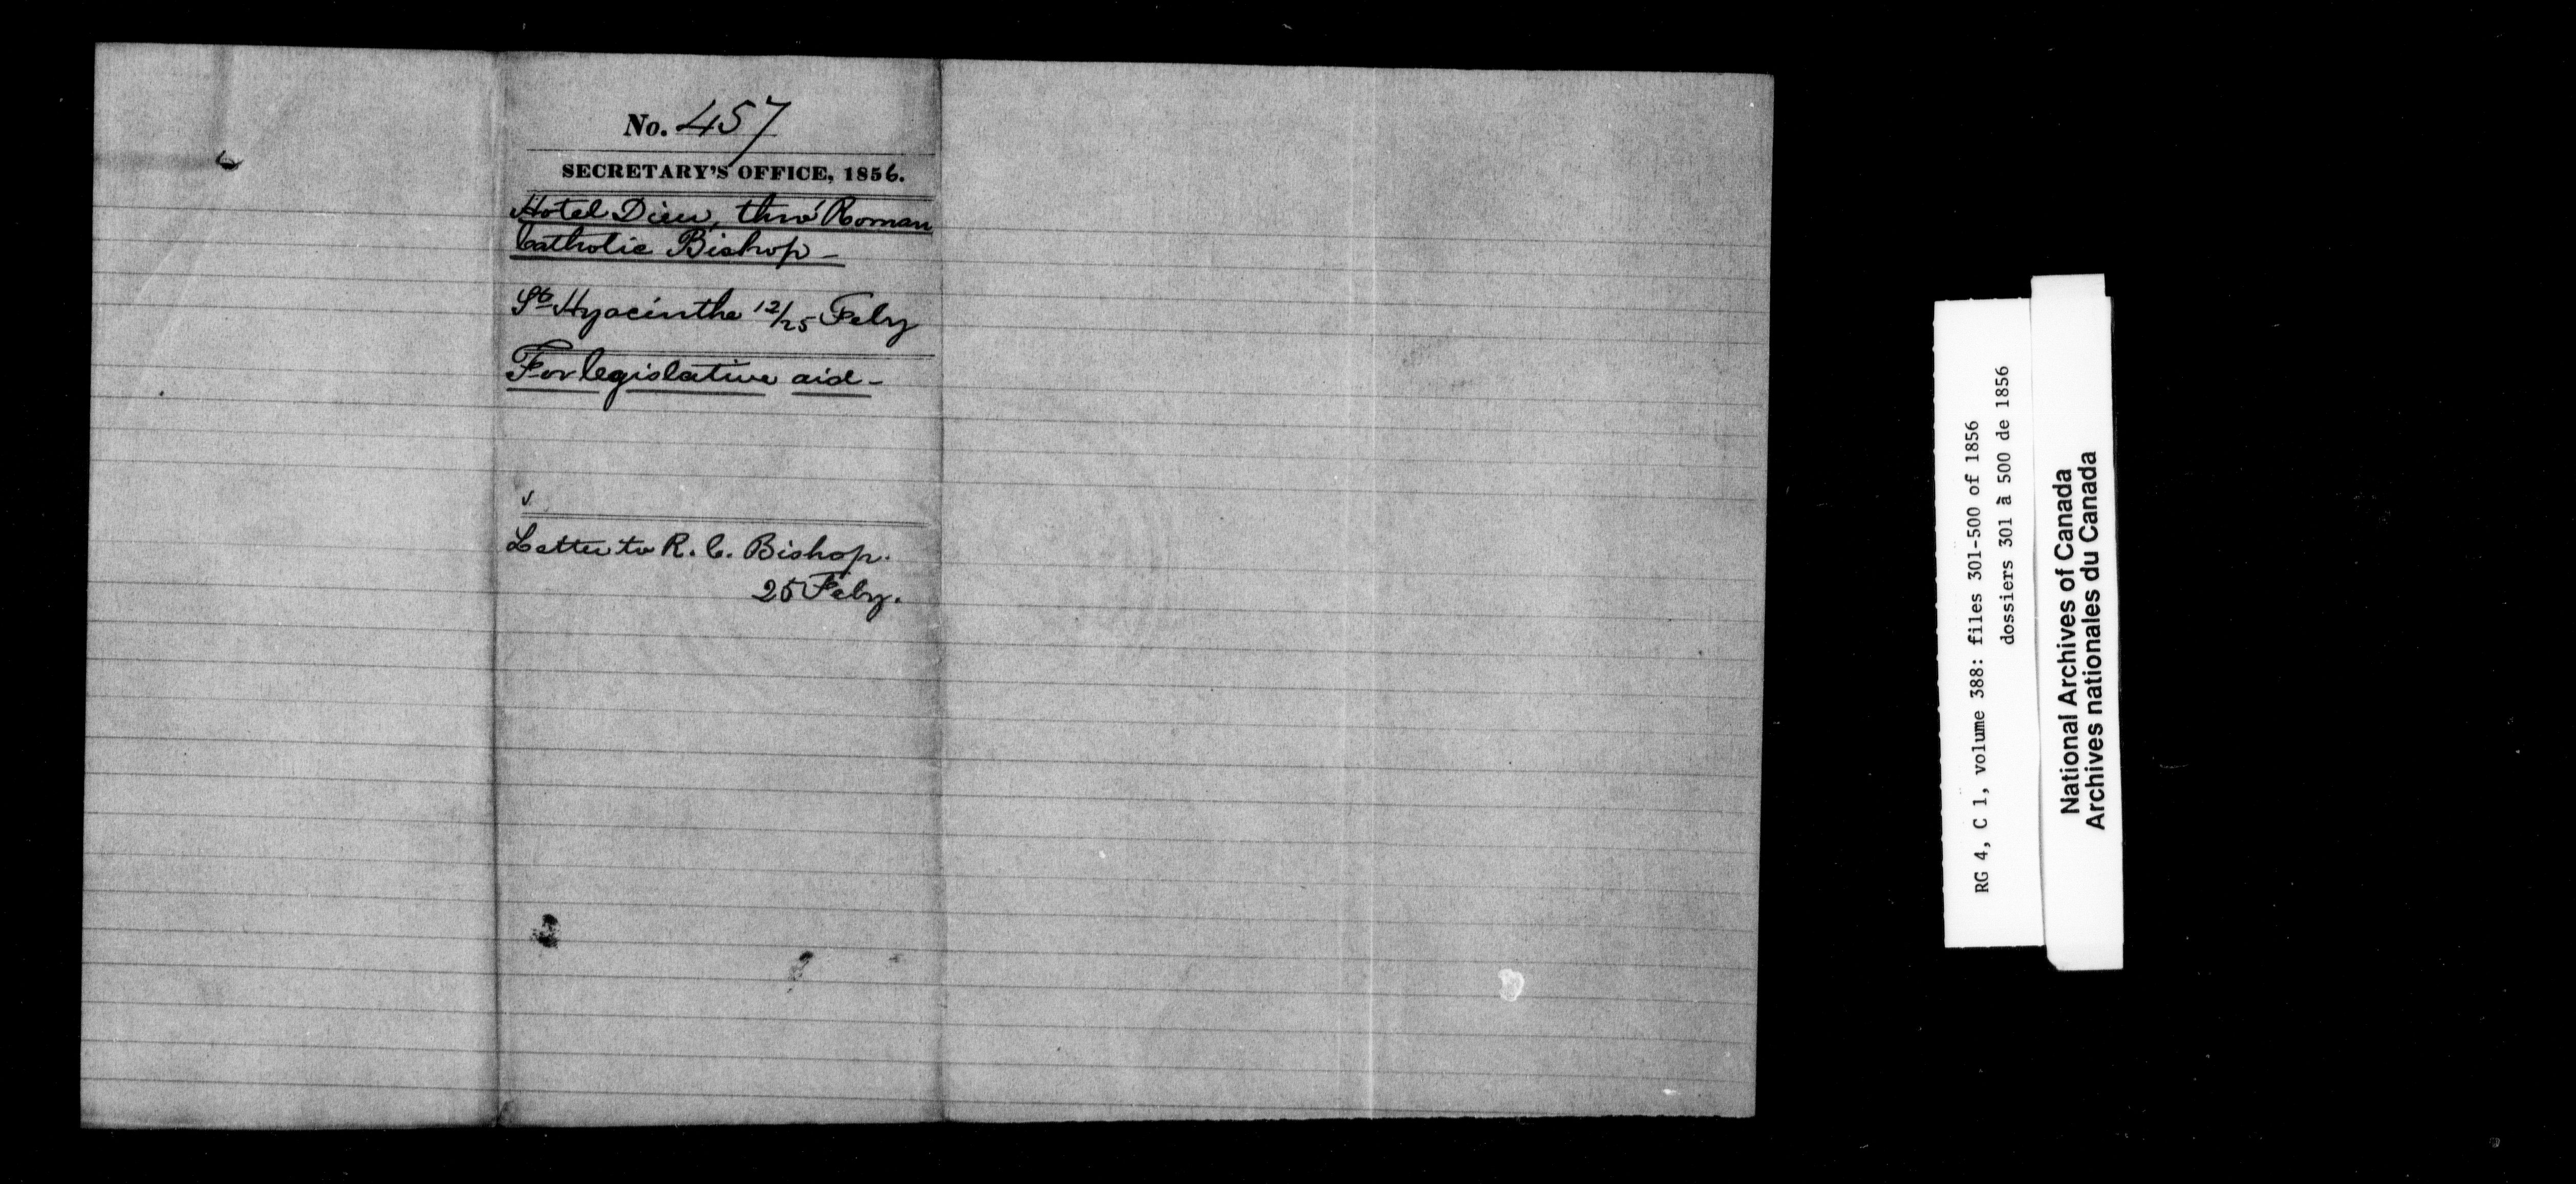 No. 457
SECRETARY'S OFFICE, 1856.
Hotel Dieu, thro' Roman
Catholic Bishop –
St Hyacinthe 12/25 Feby
For legislative aid –
Letter to R. C. Bishop.
25 Feby.
RG 4, C 1, volume 388: files 301-500 of 1856
dossiers 301 à 500 de 1856
National Archives of Canada
Archives nationales du Canada